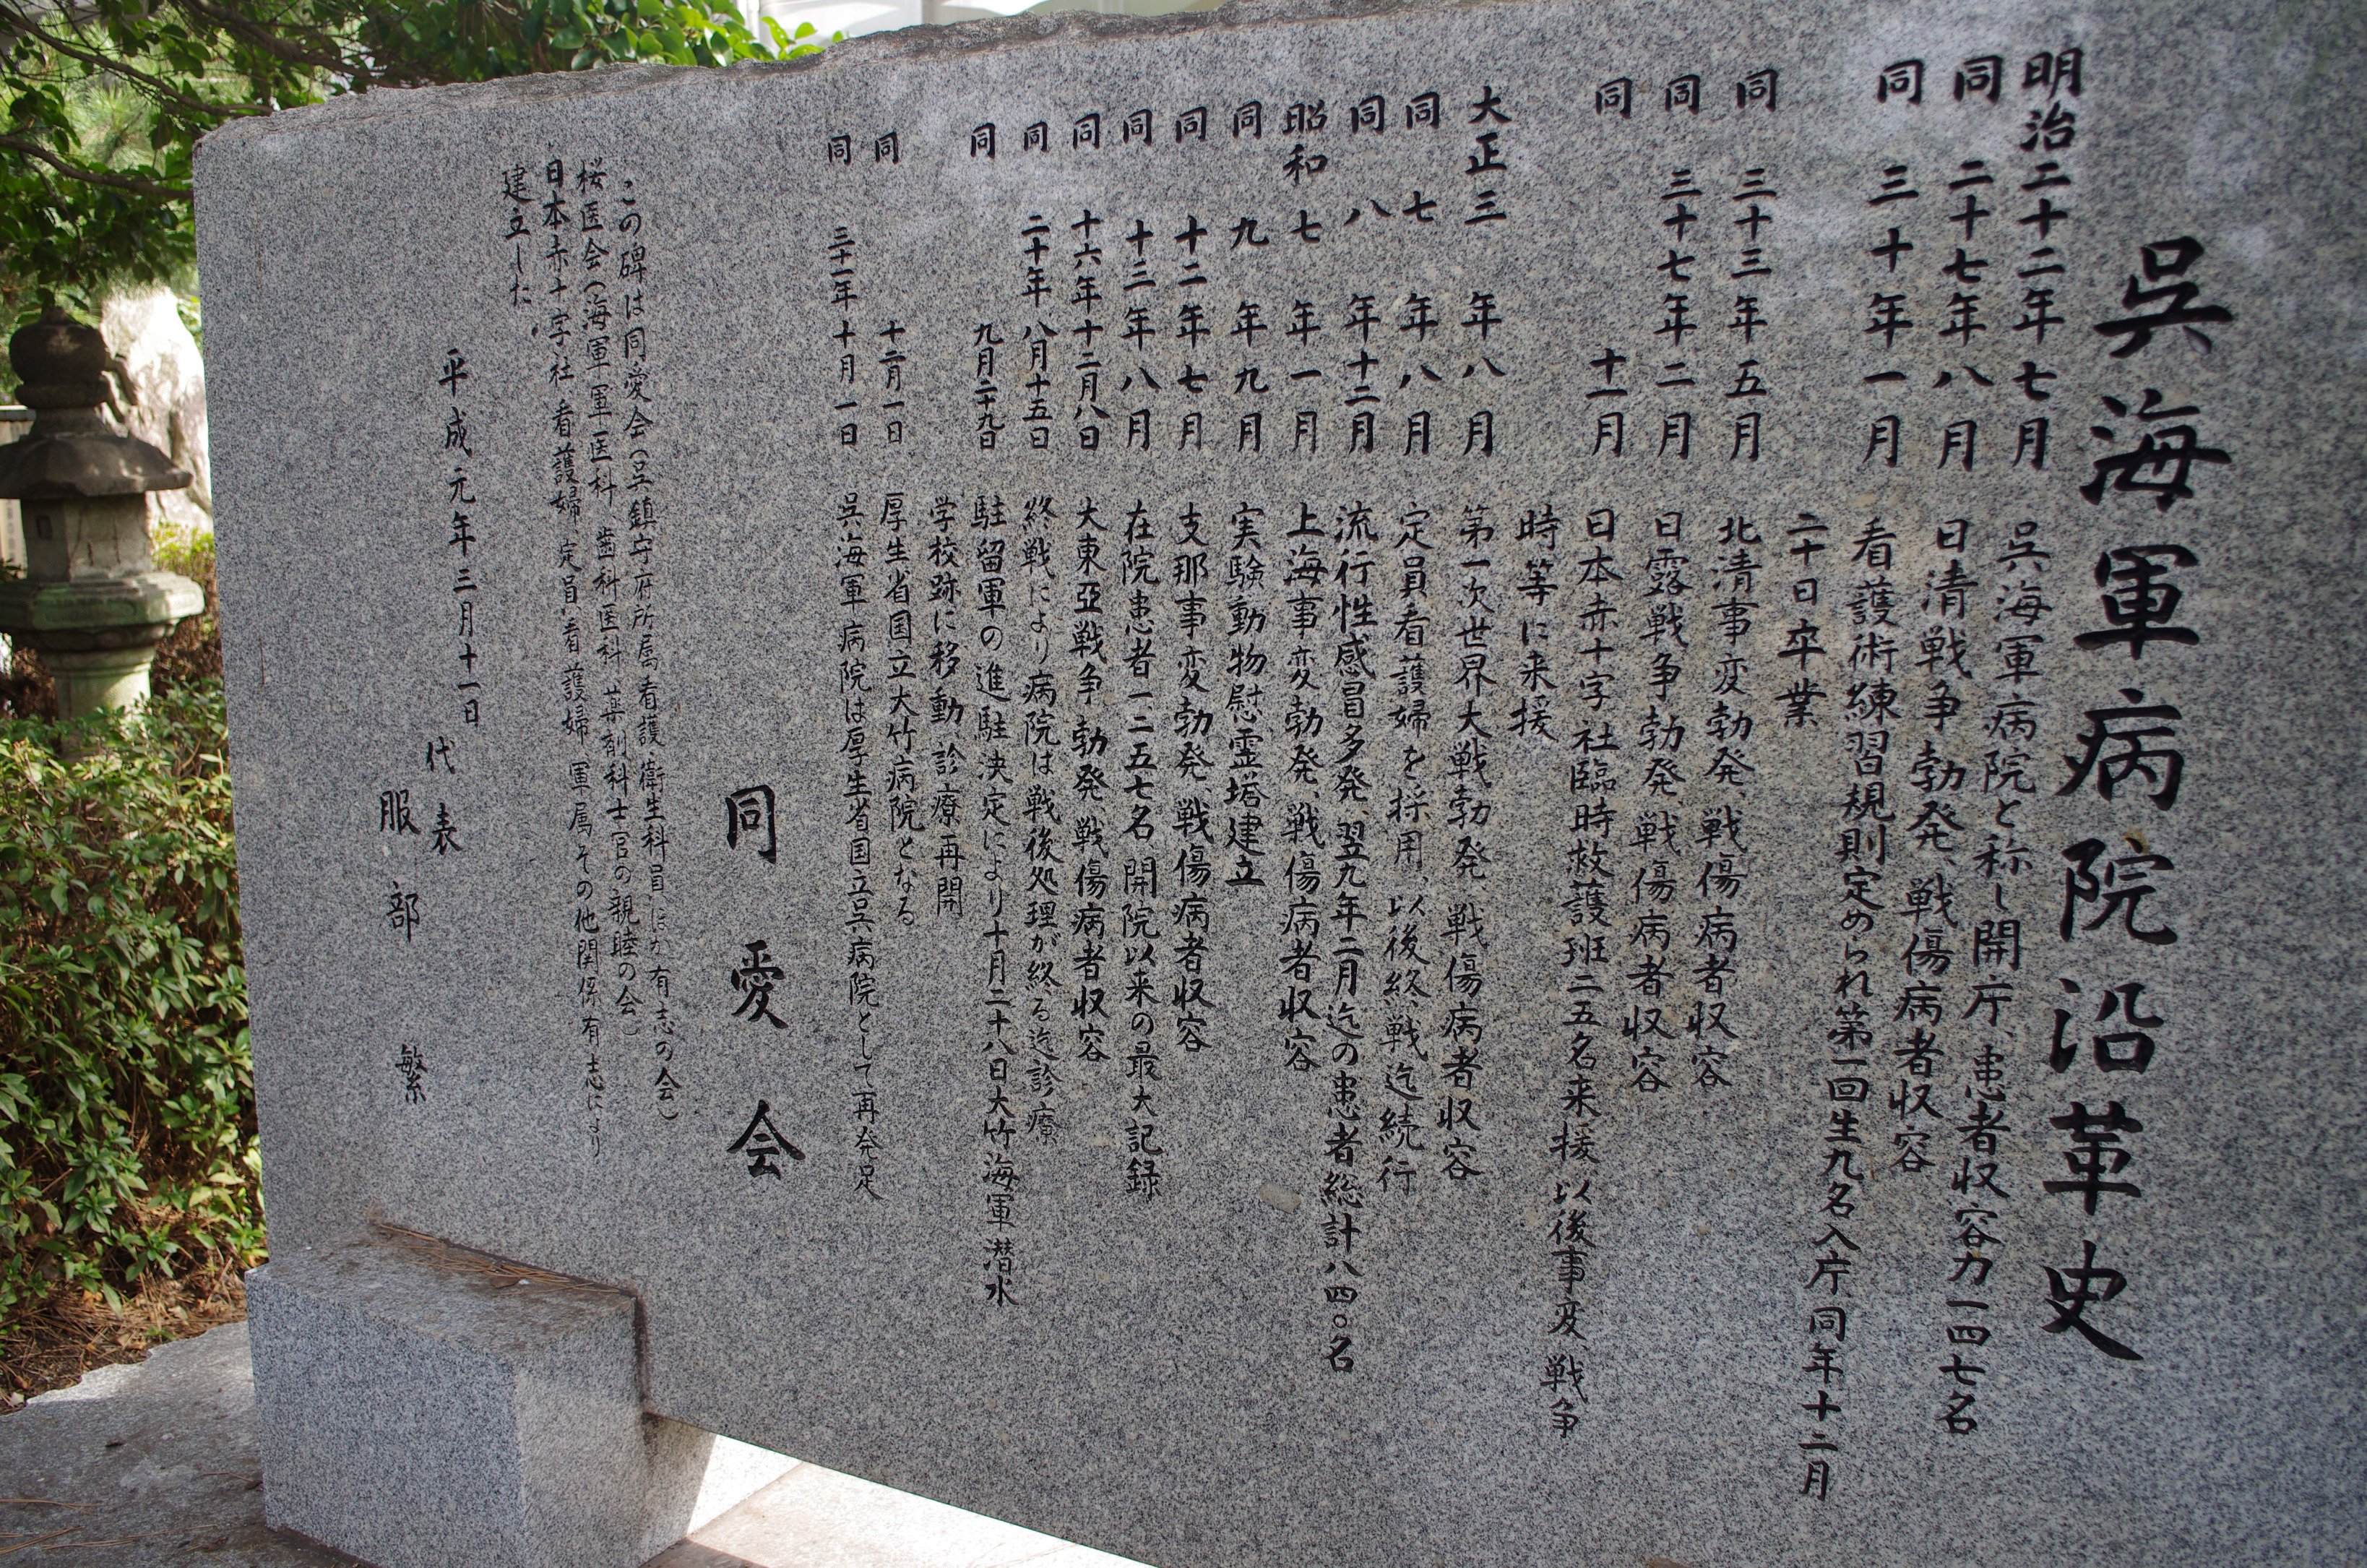 呉海軍病院沿革史
明治二十二年七月 呉海軍病院と称し開庁、患者収容力一四七名
同 二十七年八月 日清戦争勃発、戦傷病者収容
同 三十年一月 看護術練習規則定められ第一回生九名入庁同年十二月
二十日卒業
同 三十三年五月 北清事変勃発、戦傷病者収容
同 三十七年二月 日露戦争勃発、戦傷病者収容
同 十一月 日本赤十字社臨時救護班二五名来援以後事変、戦争
時等に来援
大正三年八月 第一次世界大戦勃発、戦傷病者収容
同 七年八月 定員看護婦を採用、以後終戦迄続行
同 八年十二月 流行性感冒多発、翌九年二月迄の患者総計八四〇名
昭和七年一月 上海事変勃発、戦傷病者収容
同 九年九月 実験動物慰霊塔建立
同 十二年七月 支那事変勃発、戦傷病者収容
同 十三年八月 在院患者一、二五七名、開院以来の最大記録
同 十六年十二月八日 大東亞戦争勃発、戦傷病者収容
同 二十年八月十五日 終戦により病院は戦後処理が終る迄診療
同 九月二十九日 駐留軍の進駐決定により十月二十八日大竹海軍潜水
学校跡に移動、診療再開
同 十二月一日 厚生省国立大竹病院となる
同 三十一年十月一日 呉海軍病院は厚生省国立呉病院として再発足
同愛会
この碑は同愛会(呉鎮守府所属看護・衛生科員ほか有志の会)
桜医会(海軍軍医科 歯科医科 薬剤科士官の親睦の会)
日本赤十字社看護婦 定員看護婦 軍属その他関係有志により
建立した。
平成元年三月十一日
代表
服部 繁